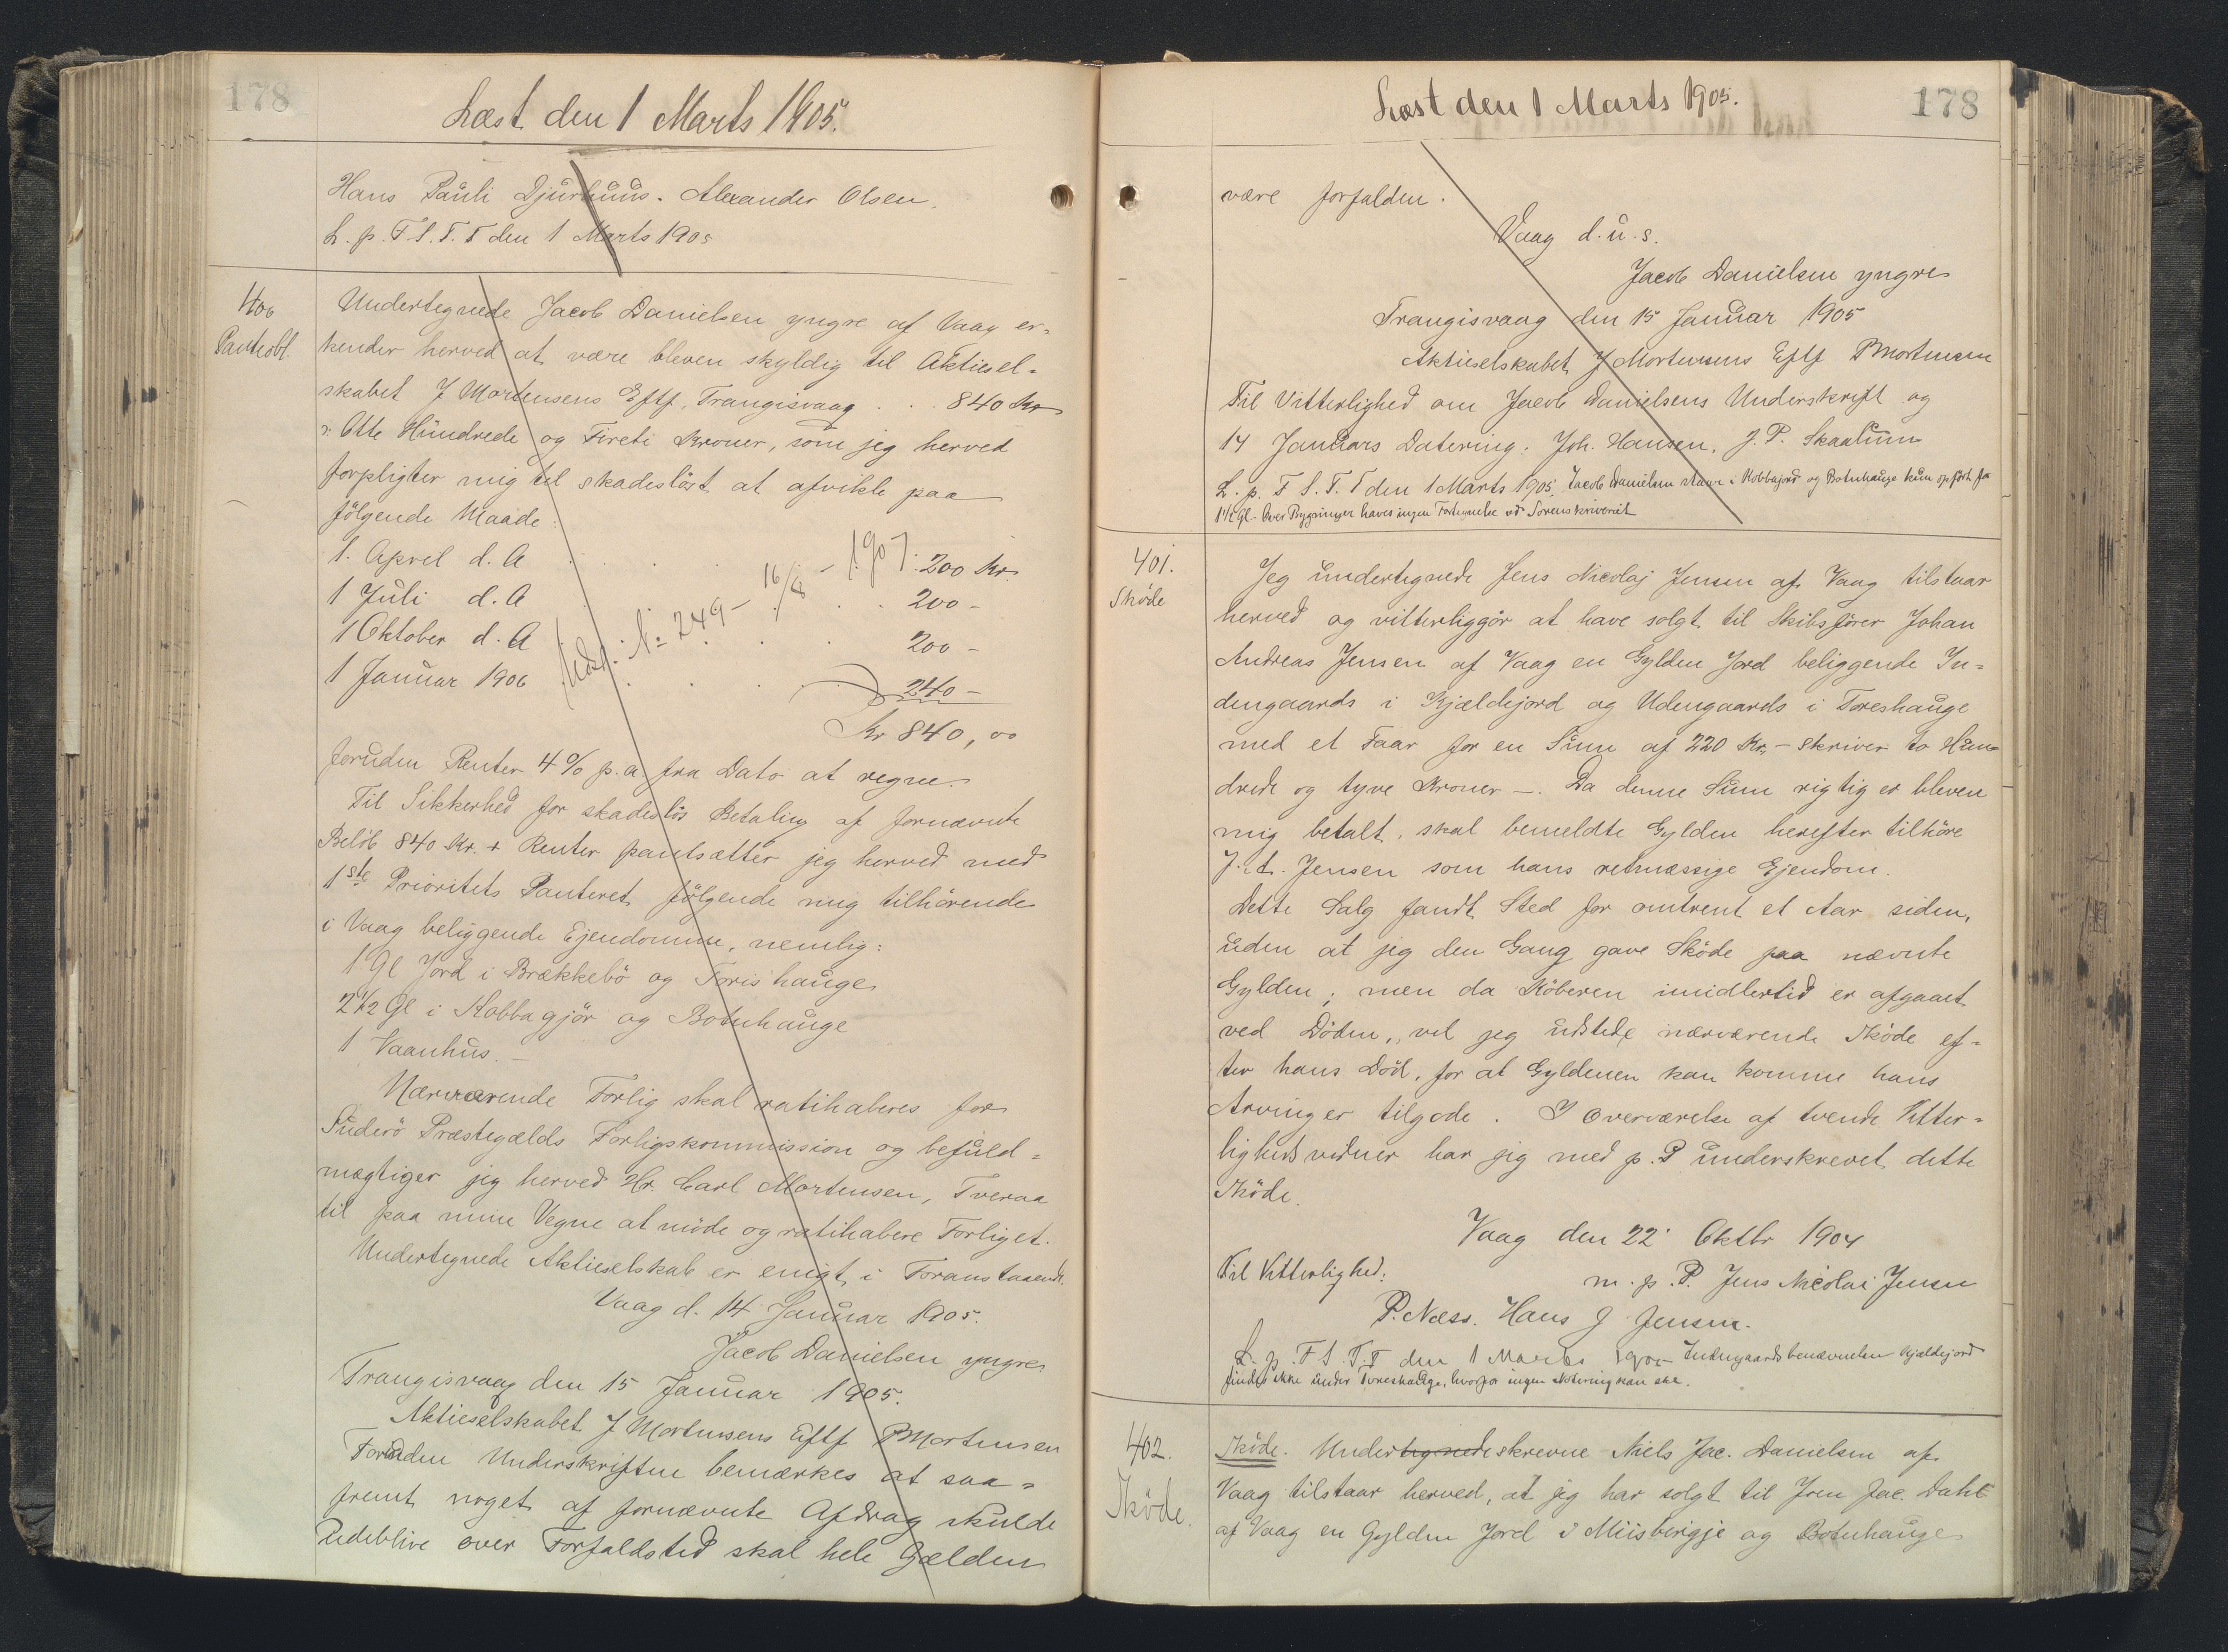 178
Læst den 1 Marts 1905.
Hans Pauli Djurhuus. Alexander Olsen.
L. p. F. S. T. T den 1 Marts 1905
400
Panteobl.
Undertegnede Jacob Danielsen yngre af Vaag er-
kender herved at være bleven skyldig til Aktiesel-
skabet J Mortensens Eftf, Trangisvaag . . . 840 Kr
Otte Hundrede og Fireti Kroner, som jeg herved
forpligter mig til skadesløst at afvikle paa
følgende Maade:
1. April d. A . . . 200 Kr
1 Juli d. A . . . 200 -
1 Oktober d. A . . . 200 -
1 Januar 1906 . . . 240 -
Udsl. № 249 - 16/8 - 1907.
Kr 840,00
foruden Renter 4% p. a. fra Dato at regne.
Til Sikkerhed for skadesløs Betaling af fornævnte
Beløb 840 Kr. + Renter pantsætter jeg herved med
1ste Prioritets Panteret følgende mig tilhørende
i Vaag beliggende Ejendomme, nemlig:
1 Gl Jord i Brækkebø og Toris hauge
2 1/2 Gl i Kobbagjør og Botnhauge
1 Vaanhus. -
Nærværende Forlig skal ratihaberes for
Suderø Præstegælds Forligskommission og befuld-
mægtiger jeg herved Hr. Carl Mortensen, Tveraa
til paa mine Vegne at møde og ratihabere Forliget.
Undertegnede Aktieselskab er enigt i Foranstaaende
Vaag d. 14 Januar 1905.
Jacob Danielsen yngre
Trangisvaag den 15 Januar 1905.
Aktieselskabet J Mortensens Eftf PMortensen
Foruden Underskriften bemærkes at saa-
fremt noget af fornævnte Afdrag skulde
udeblive over Forfaldstid skal hele Gælden
178
Læst den 1 Marts 1905.
være forfalden.
Vaag d. u. s.
Jacob Danielsen yngre
Trangisvaag den 15 Januar 1905
Aktieselskabet J Mortensens Eftf PMortensen
Til Vitterlighed om Jacob Danielsens Underskrift og
14 Januars Datering. Joh. Hansen, J. P. Skaalum
L. p. F S. T. T den 1 Marts 1905, Jacob Danielsen staar i Kobbajord og Botnhauge kun opført for
1 1/2 Gl - Over Bygninger haves ingen Fortegnelse ved Sorenskriveriet
401.
Skøde
Jeg undertegnede Jens Nicolaj Jensen af Vaag tilstaar
herved og vitterliggør at have solgt til Skibsfører Johan
Andreas Jensen af Vaag en Gylden Jord beliggende In-
dengaards i Kjældejord og Udengaards i Toreshauge
med et Faar for en Sum af 220 Kr, - skriver to Hun-
drede og tyve Kroner -. Da denne Sum rigtig er bleven
mig betalt, skal bemeldte Gylden herefter tilhøre
J. A. Jensen som hans retmæssige Ejendom.
Dette Salg fandt Sted for omtrent et Aar siden,
uden at jeg den Gang gave Skøde paa nævnte
Gylden; men da Køberen imidlertid er afgaaet
ved Døden, vil jeg udstede nærværende Skøde ef-
ter hans Død, for at Gyldenen kan komme hans
Arvinger tilgode. I Overværelse af tvende Vitter-
ligheds vidner har jeg med p. P underskrevet dette
Skøde.
Vaag den 22 Oktbr 1904
Til Vitterlighed:
m. p. P. Jens Nicolai Jensen
P. Næss. Hans J Jensen.
L. p. F S. T. T den 1 Marts 1905 - Indengaardsbenævnelsen Kjældejord
findes ikke under Toreshauge, hvorfor ingen Notering kan ske.
402.
Skøde.
Skøde. Undertegnede skrevne Niels Jac. Danielsen af
Vaag tilstaar herved, at jeg har solgt til Joen Jac. Dahl
af Vaag en Gylden Jord i Miisbirgje og Botnhauge